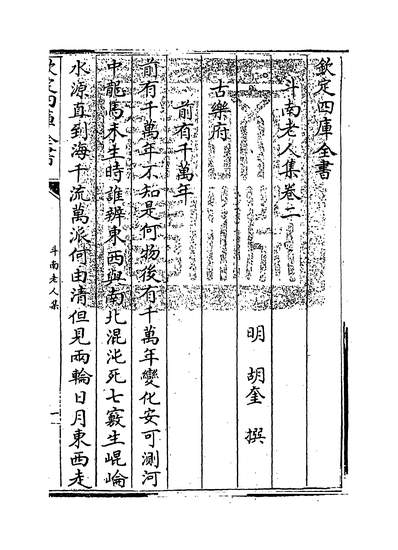 欽定四庫全書
斗南老人集卷二
明 胡奎 撰
古樂府
前有千萬年
前有千萬年不知是何物後有千萬年變化安可測河
中龍馬未生時誰辨東西與南北混沌死七竅生崐崘
水源直到海千流萬派何由清但見兩輪日月東西走
欽定四庫全書
斗南老人集
一